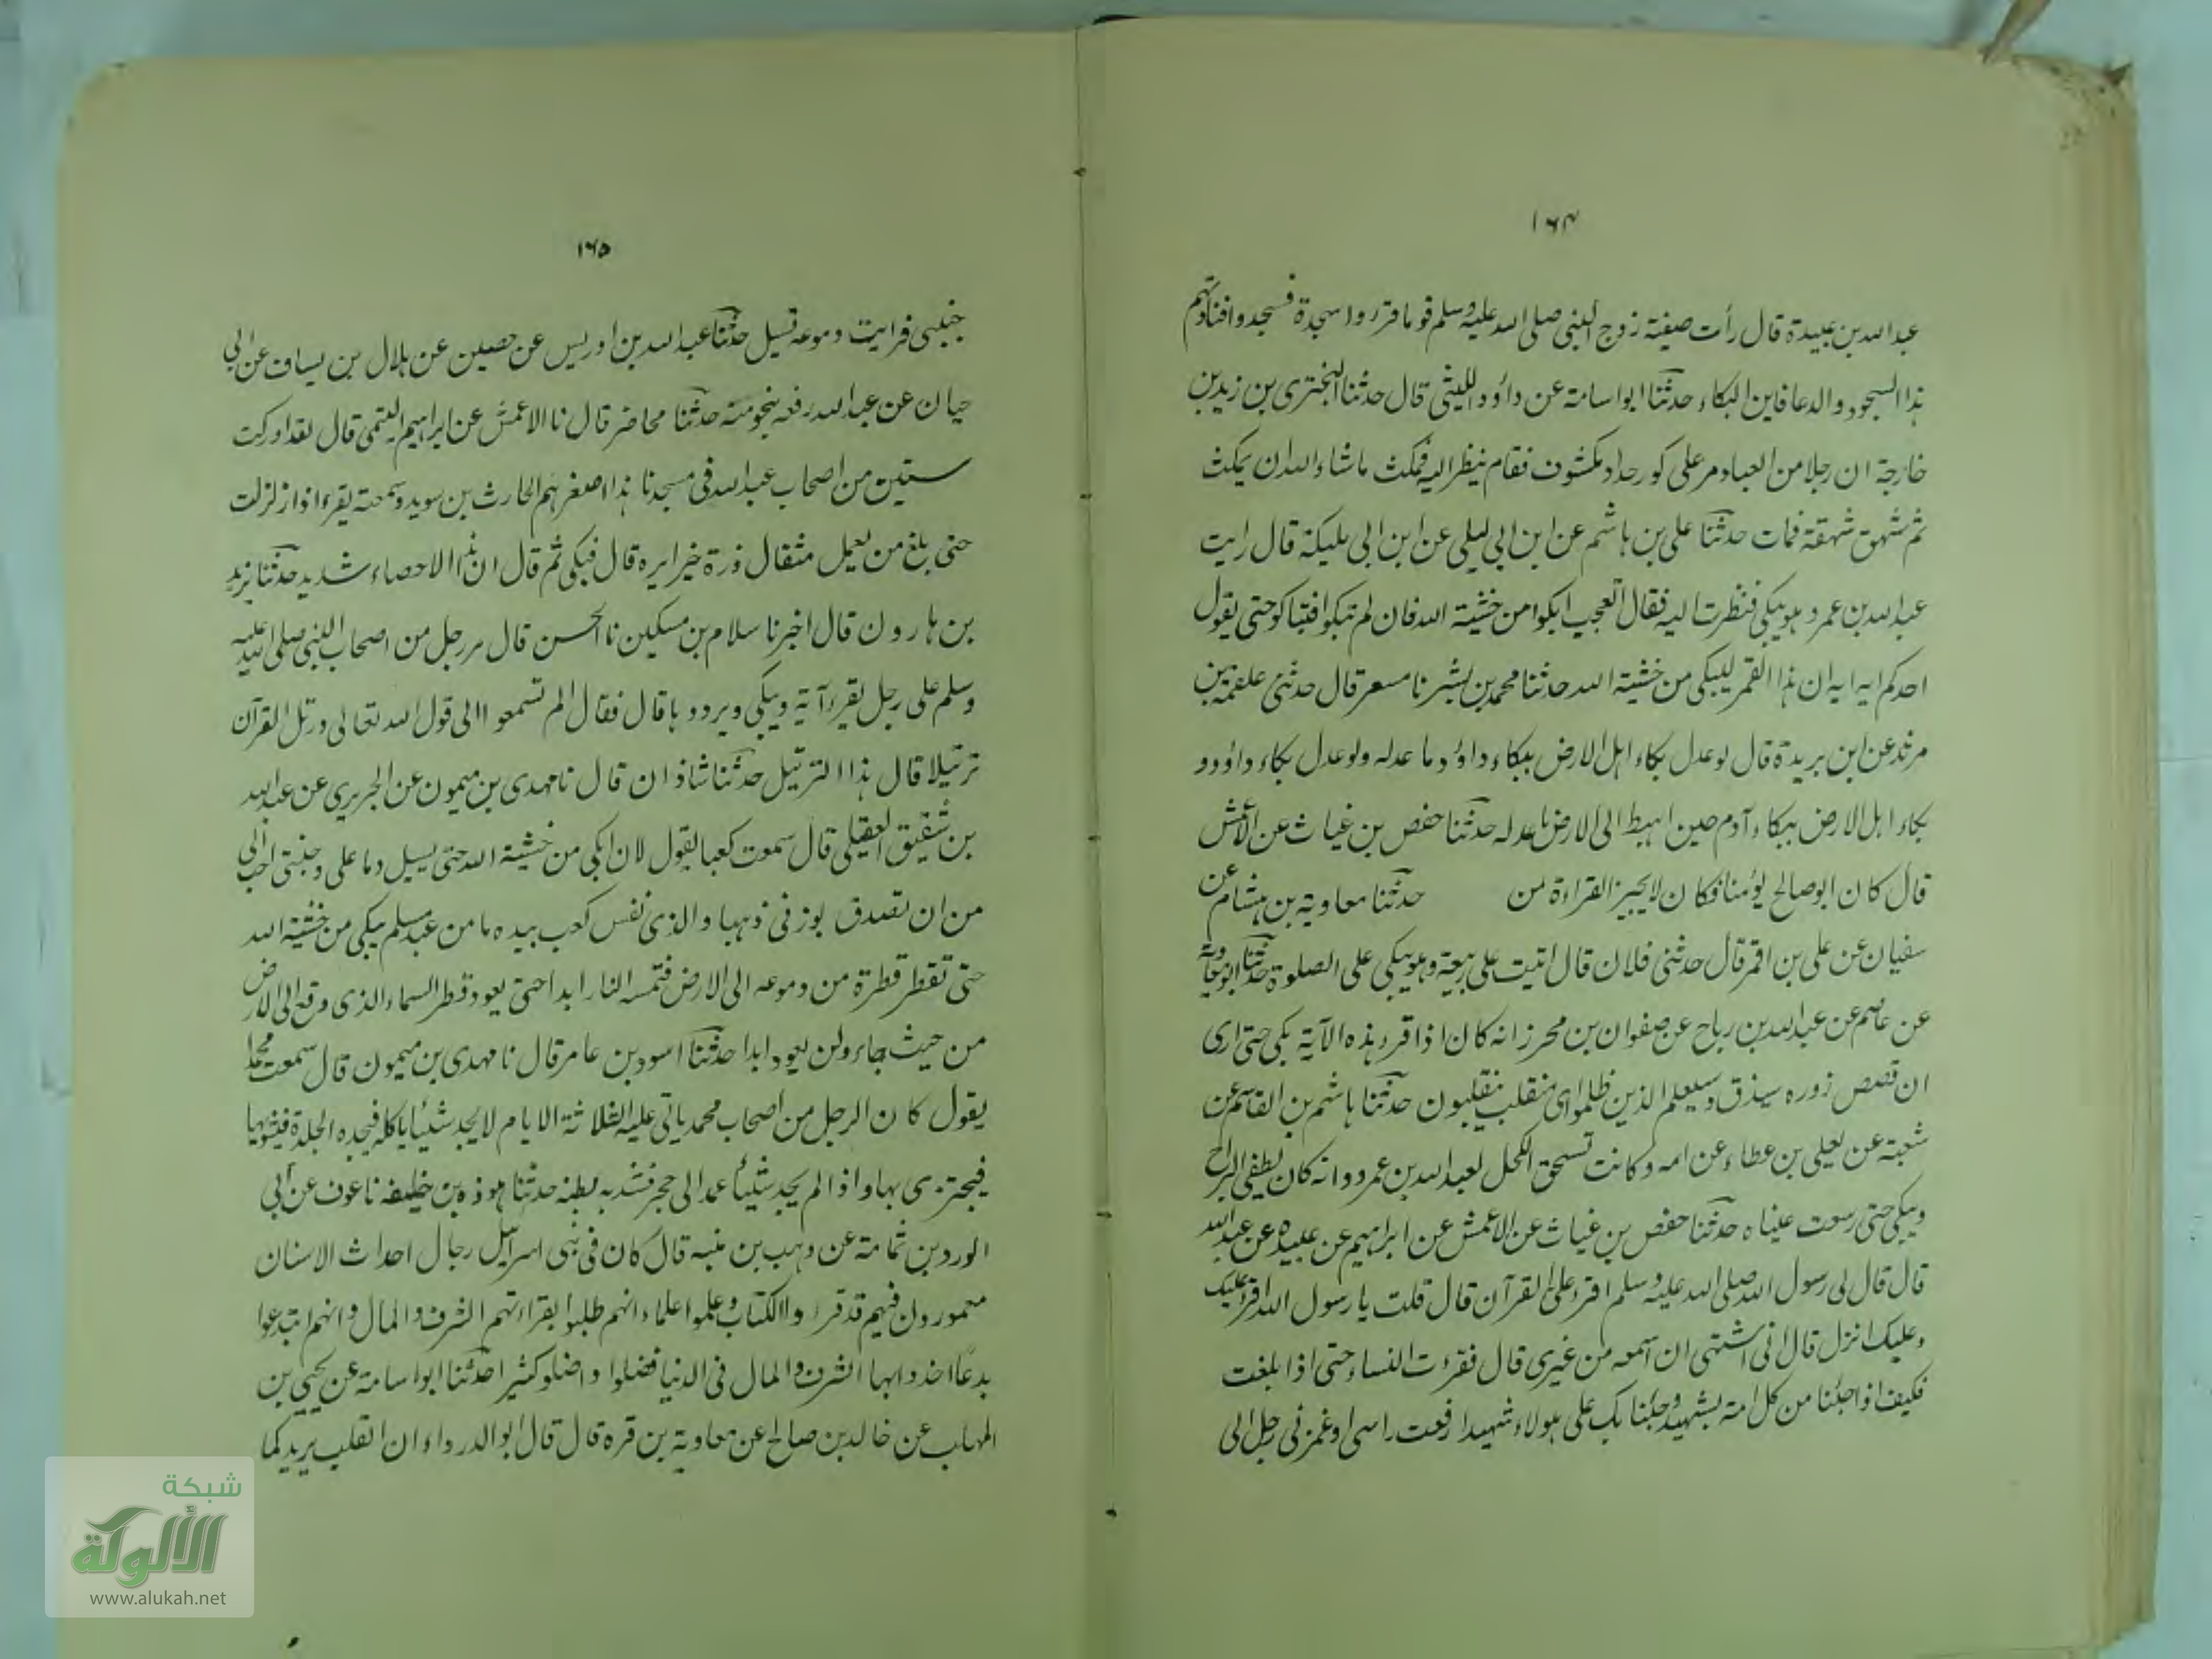 ١٦٤
عبد الله بن عبيدة قال رأت صفية زوج النبي صلى الله عليه وسلم قوما قرءوا سجدة فسجدوا فنادتهم
هذا السجود والدعا فاين البكاء حدثنا ابو اسامة عن داؤد الليثى قال حدثنا البخترى بن زيد بن
خارجة ان رجلا من العباد مر على كور حداد مكشوف فقام ينظر اليه فمكث ماشاء الله ان يمكث
ثم شهق شهقة فمات حدثنا على بن هاشم عن ابن ابى ليلى عن ابن ابى مليكة قال رايت
عبد الله بن عمرو هو يبكى فنظرت اليه فقال اتعجب ابكوا من خشية الله فان لم تبكوا فتباكو حتى يقول
احدكم ايه ايه ان هذا القمر ليبكى من خشية الله حدثنا محمد بن بشير نا مسعر قال حدثنى علقمة بن
مرثد عن ابن بريدة قال لو عدل بكاء اهل الارض ببكاء داؤد ما عدله ولو عدل بكاء داؤد و
بكاء اهل الارض ببكاء آدم حين اهبط الى الارض ما عدله حدثنا حفص بن غياث عن الاعمش
قال كان ابو صالح يؤمنا فكان لا يجيز القراءة من حدثنا معاوية بن هشام عن
سفيان عن على بن اقمر قال حدثنى فلان قال اتيت على ربيعة وهو يبكى على الصلوة حدثنا ابو معاوية
عن عاصم عن عبد الله بن رباح عن صفوان بن محرز انه كان اذا قرء هذه الآية بكى حتى ارى
ان قصص زوره سيذق وسيعلم الذين ظلموا اى منقلب ينقلبون حدثنا هاشم بن القاسم عن
شعبة عن يعلى بن عطاء عن امه وكانت تسحق الكحل لعبد الله بن عمرو وانه كان يطفى السراج
ويبكى حتى رسعت عيناه حدثنا حفص بن غياث عن الاعمش عن ابراهيم عن عبيده عن عبد الله
قال قال لى رسول الله صلى الله عليه وسلم اقرء على القرآن قال قلت يا رسول الله اقرء عليك
وعليك انزل قال انى اشتهى ان اسمعه من غيرى قال فقرءت النساء حتى اذا بلغت
فكيف اذا جئنا من كل امة بشهيد وجئنا بك على هولاء شهيدا رفعت راسى او غمزنى رجل الى
١٦٥
جنبى فرايت دموعه تسيل حدثنا عبد الله بن ادريس عن حصين عن هلال بن يساف عن ابى
حيان عن عبد الله رفعه بنحو منه حدثنا محاضر قال نا الاعمش عن ابراهيم التيمى قال لقد ادركت
ستين من اصحاب عبد الله فى مسجدنا هذا اصغرهم الحارث بن سويد وسمعته يقرء اذا زلزلت
حتى بلغ من يعمل مثقال ذرة خيرا يره قال فبكى ثم قال ان هذا الاحصاء شديد حدثنا يزيد
بن هارون قال اخبرنا سلام بن مسكين نا الحسن قال مر رجل من اصحاب النبى صلى الله عليه
وسلم على رجل يقرء آية ويبكى ويرددها قال فقال الم تسمعوا الى قول الله تعالى ورتل القرآن
ترتيلا قال هذا الترتيل حدثنا شاذان قال نا مهدى بن ميمون عن الجريرى عن عبد الله
بن شقيق العقيلى قال سمعت كعبا يقول لان ابكى من خشية الله حتى يسيل دما على وجنتى احب الى
من ان تصدق بوزنى ذهبا والذى نفس كعب بيده ما من عبد مسلم يبكى من خشية الله
حتى تقطر قطرة من دموعه الى الارض فتمسه النار ابدا حتى يعود قطر السماء الذى وقع الى الارض
من حيث جاء ولن يعود ابدا حدثنا اسود بن عامر قال نا مهدى بن ميمون قال سمعت محمدا
يقول كان الرجل من اصحاب محمد ياتى عليه الثلاثة الايام لا يجد شئيا ياكله فيجده الجلدة فيشويها
فيجتزى بها واذا لم يجد شئيا عمد الى حجر فشد به بطنه حدثنا هوذه بن خليفه نا عوف عن ابى
الورد بن ثمامة عن وهب بن منبه قال كان فى بنى اسرائيل رجال احداث الاسنان
معمورون فيهم قد قرءوا الكتاب وعلموا علماء انهم طلبوا بقراءتهم الشرف والمال وانهم ابتدعوا
بدعا اخذوا بها الشرف والمال فى الدنيا فضلوا واضلو كثيرا حدثنا ابو اسامة عن يحيى بن
المهلب عن خالد بن صالح عن معاوية بن قرة قال قال ابو الدرداء ان القلب يربد كما
شبكة
الألوكة
www.alukah.net